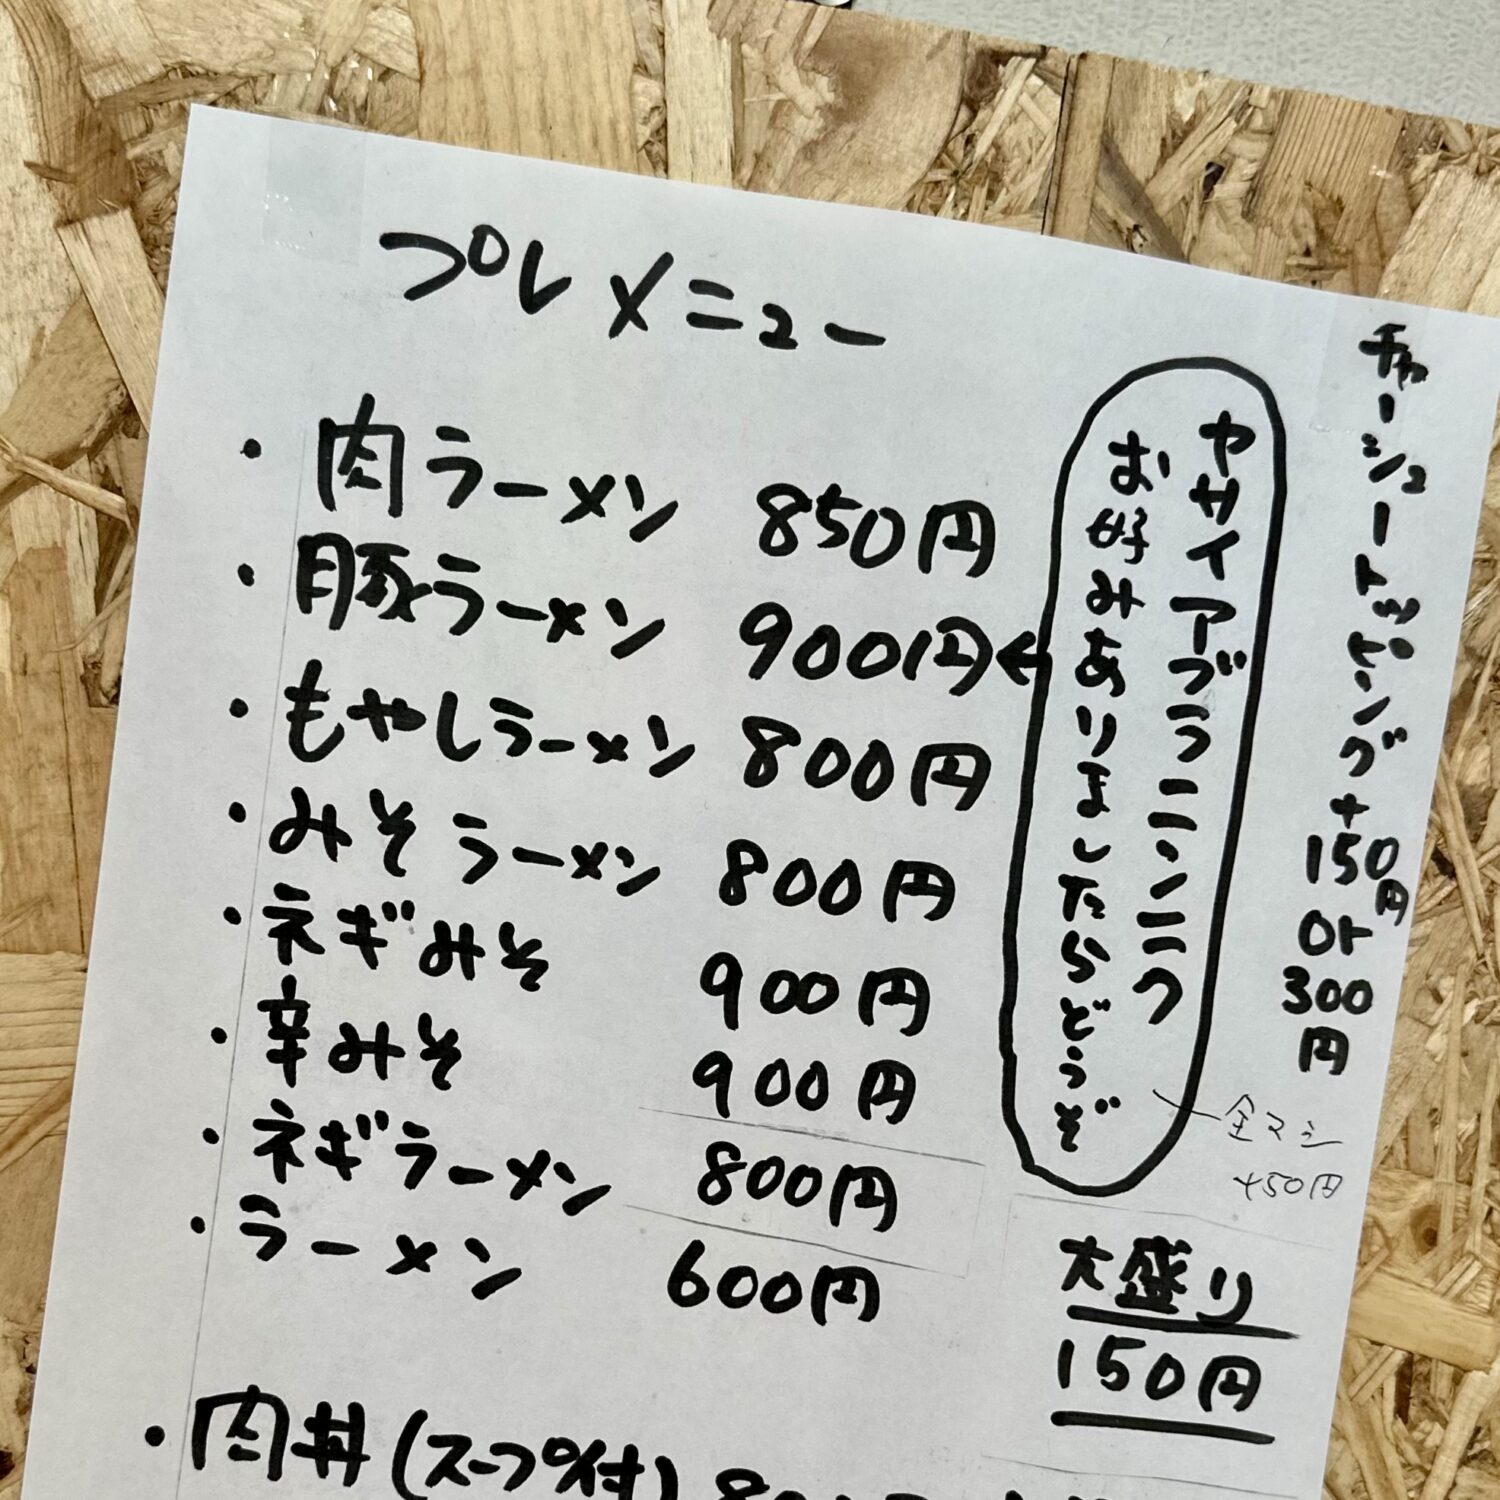 プレメニュー
・肉ラーメン 850円
・豚ラーメン 900円←
・もやしラーメン 800円
・みそラーメン 800円
・ネギみそ 900円
・辛みそ 900円
・ネギラーメン 800円
・ラーメン 600円
・肉丼(スープ付)
ヤサイアブラニンニク
お好みありましたらどうぞ
全マシ
+50円
チャーシュートッピング+150円or300円
大盛り
150円